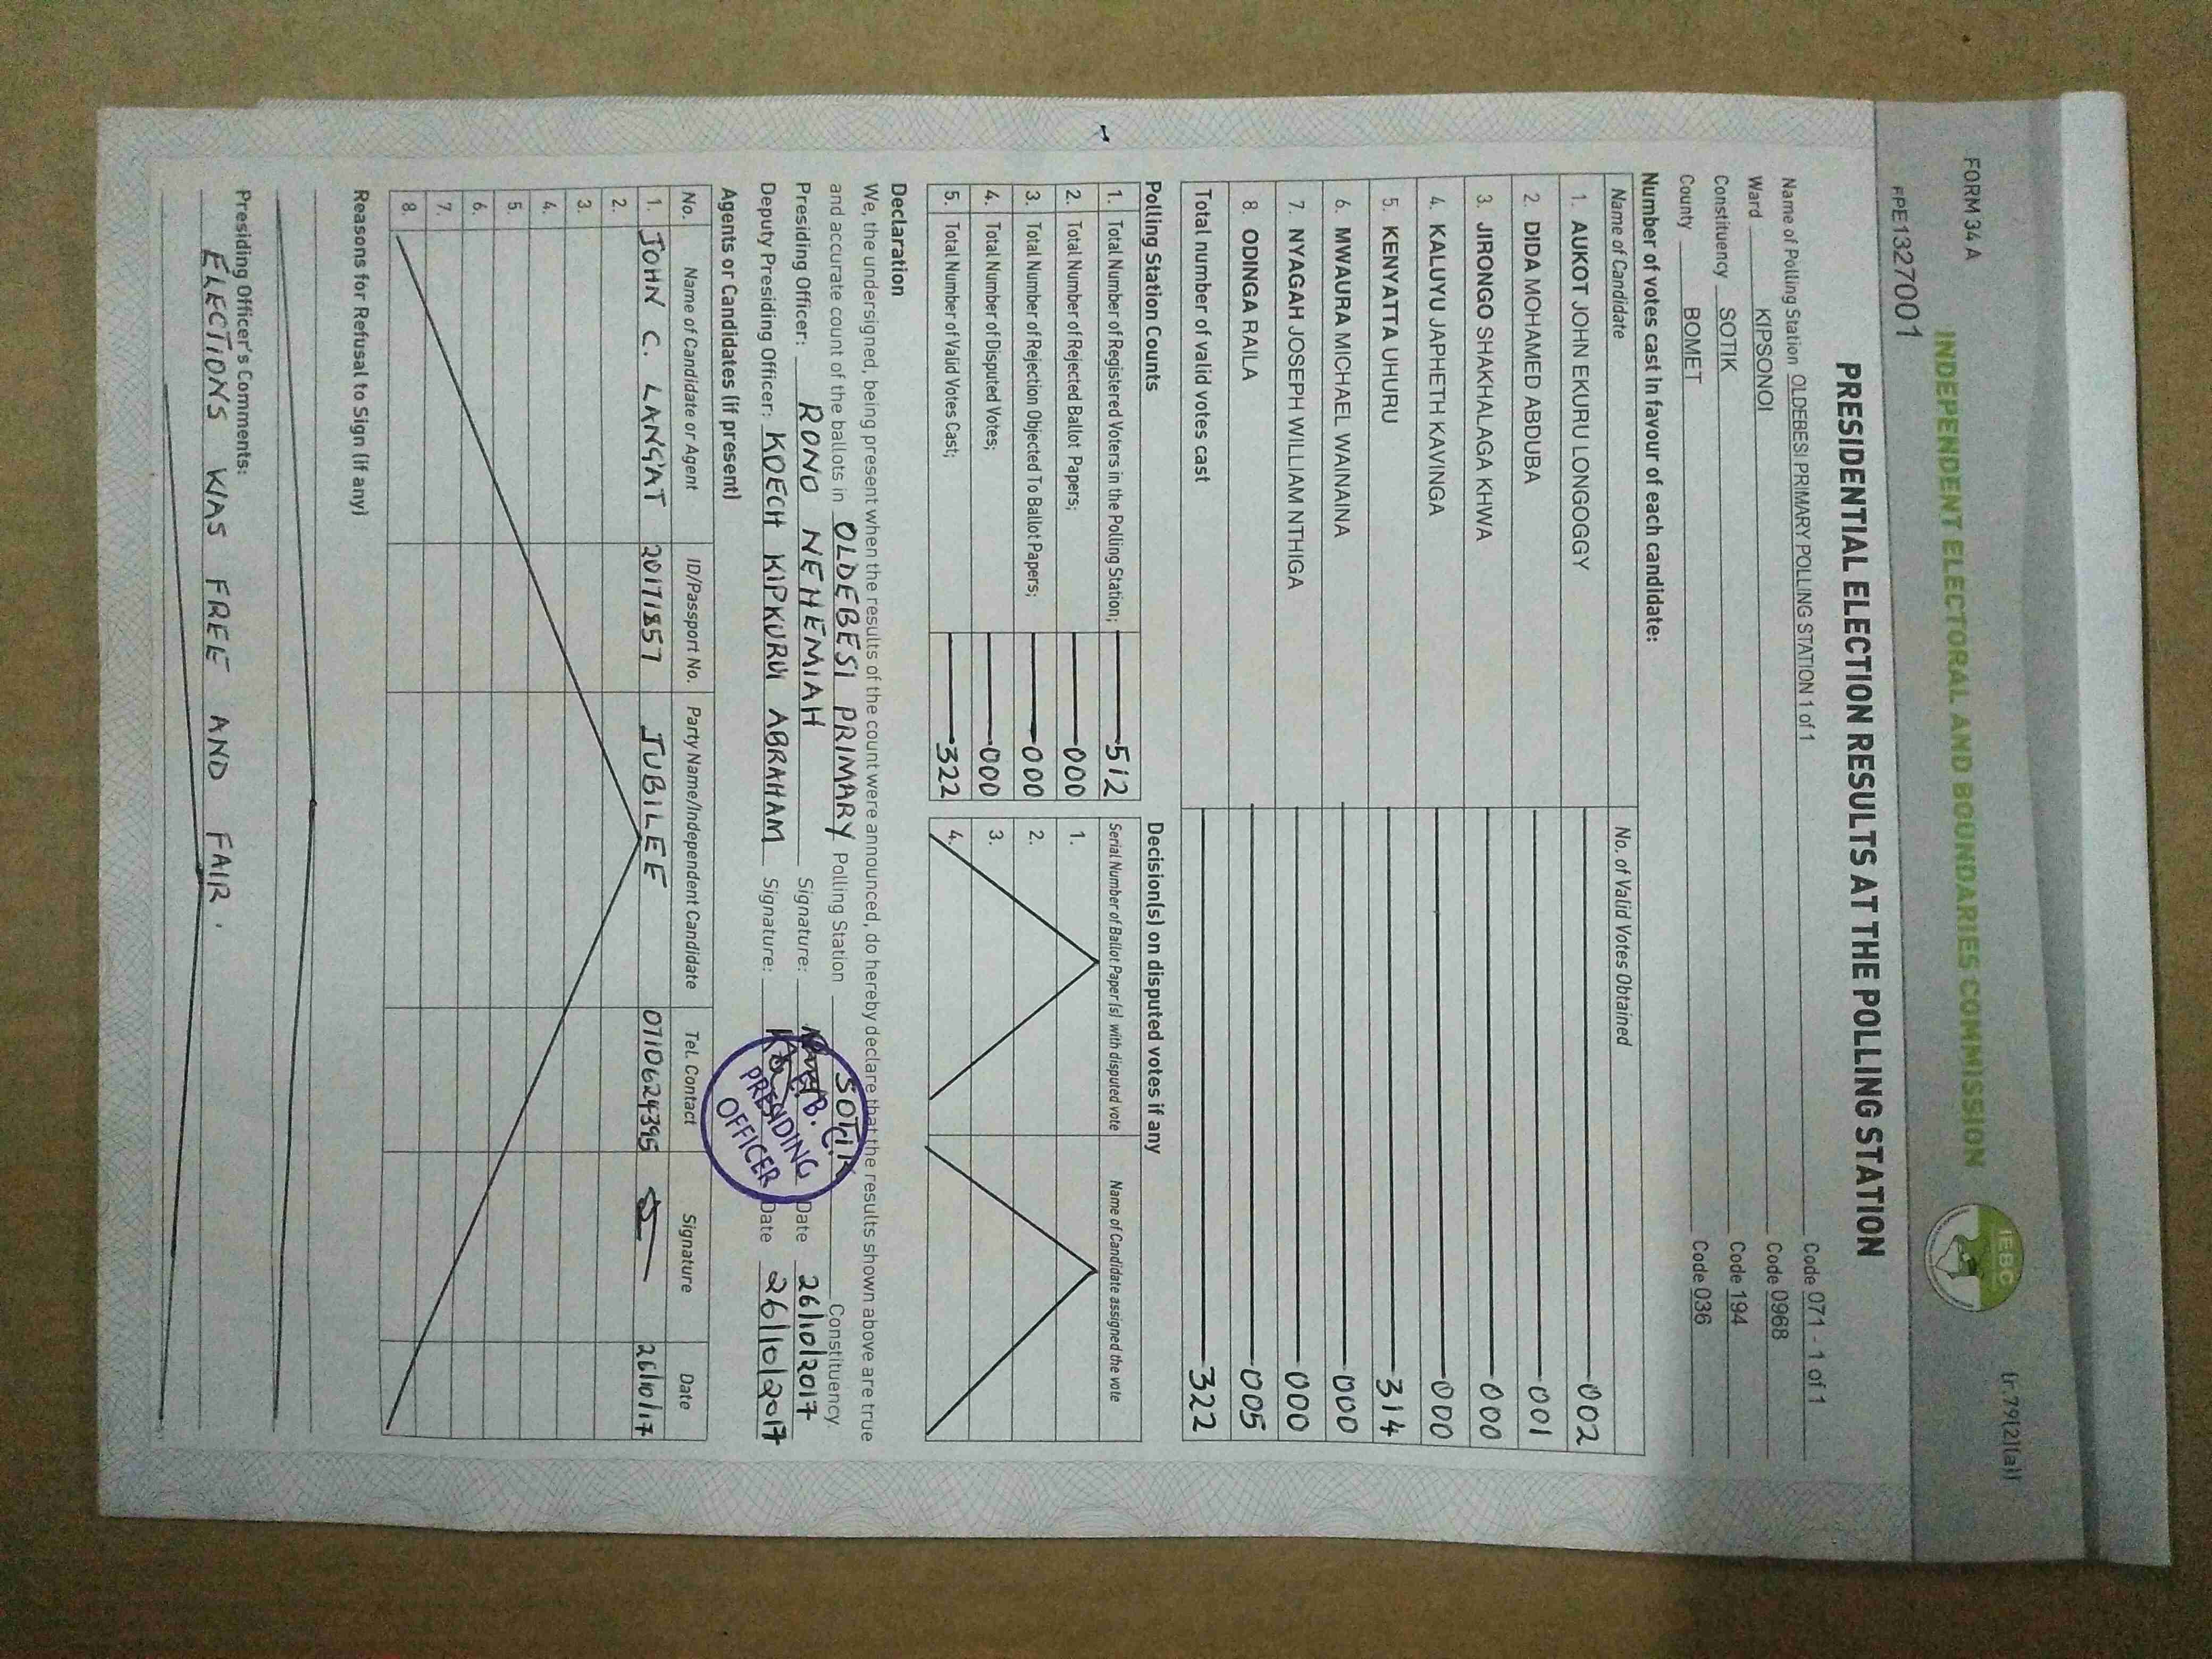 FORM 34 A
(r.79(2)(a))
INDEPENDENT ELECTORAL AND BOUNDARIES COMMISSION
IEBC
PPE1327001
PRESIDENTIAL ELECTION RESULTS AT THE POLLING STATION
Name of Polling Station OLDEBESI PRIMARY POLLING STATION 1 of 1 Code 071 - 1 of 1
Ward KIPSONOI Code 0968
Constituency SOTIK Code 194
County BOMET Code 036
Number of votes cast in favour of each candidate:
Name of Candidate No. of Valid Votes Obtained
1. AUKOT JOHN EKURU LONGOGGY 002
2. DIDA MOHAMED ABDUBA 001
3. JIRONGO SHAKHALAGA KHWA 000
4. KALUYU JAPHETH KAVINGA 000
5. KENYATTA UHURU 314
6. MWAURA MICHAEL WAINAINA 000
7. NYAGAH JOSEPH WILLIAM NTHIGA 000
8. ODINGA RAILA 005
Total number of valid votes cast 322
Polling Station Counts
1. Total Number of Registered Voters in the Polling Station; 512
2. Total Number of Rejected Ballot Papers; 000
3. Total Number of Rejection Objected To Ballot Papers; 000
4. Total Number of Disputed Votes; 000
5. Total Number of Valid Votes Cast; 322
Decision(s) on disputed votes if any
Serial Number of Ballot Paper(s) with disputed vote Name of Candidate assigned the vote
1.
2.
3.
4.
Declaration
We, the undersigned, being present when the results of the count were announced, do hereby declare that the results shown above are true
and accurate count of the ballots in OLDEBESI PRIMARY Polling Station SOTIK Constituency.
Presiding Officer: RONO NEHEMIAH Signature: Date 26/10/2017
Deputy Presiding Officer: KOECH KIPKURUI ABRAHAM Signature: Date 26/10/2017
PRESIDING
OFFICER
Agents or Candidates (if present)
No. Name of Candidate or Agent ID/Passport No. Party Name/Independent Candidate Tel. Contact Signature Date
1. JOHN C. LANG'AT 20171857 JUBILEE 0710624395 26/10/17
2.
3.
4.
5.
6.
7.
8.
Reasons for Refusal to Sign (if any)
Presiding Officer's Comments:
ELECTIONS WAS FREE AND FAIR.